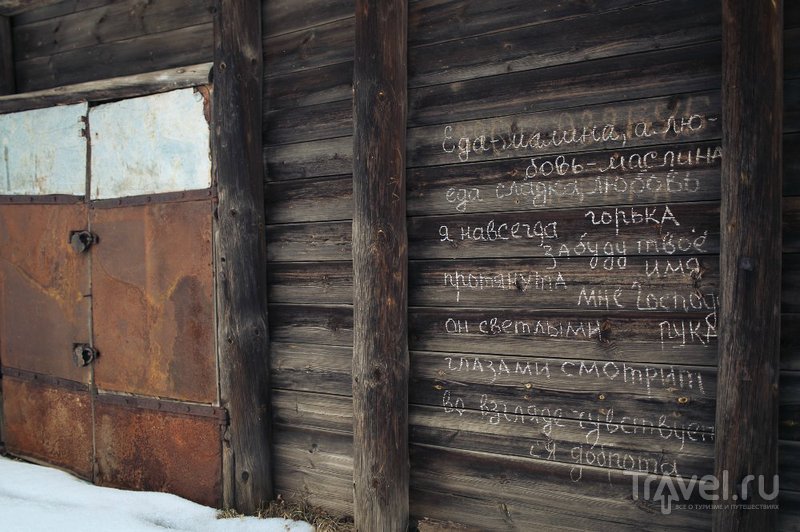 Еда-малина, а лю-
бовь-маслина
еда сладка, любовь
горька
я навсегда забуду твоё
имя
протянута мне Господа
рука
он светлыми
глазами смотрит
во взгляде чувствует
ся доброта
travel.ru
ВСЕ О ТУРИЗМЕ И ПУТЕШЕСТВИЯХ